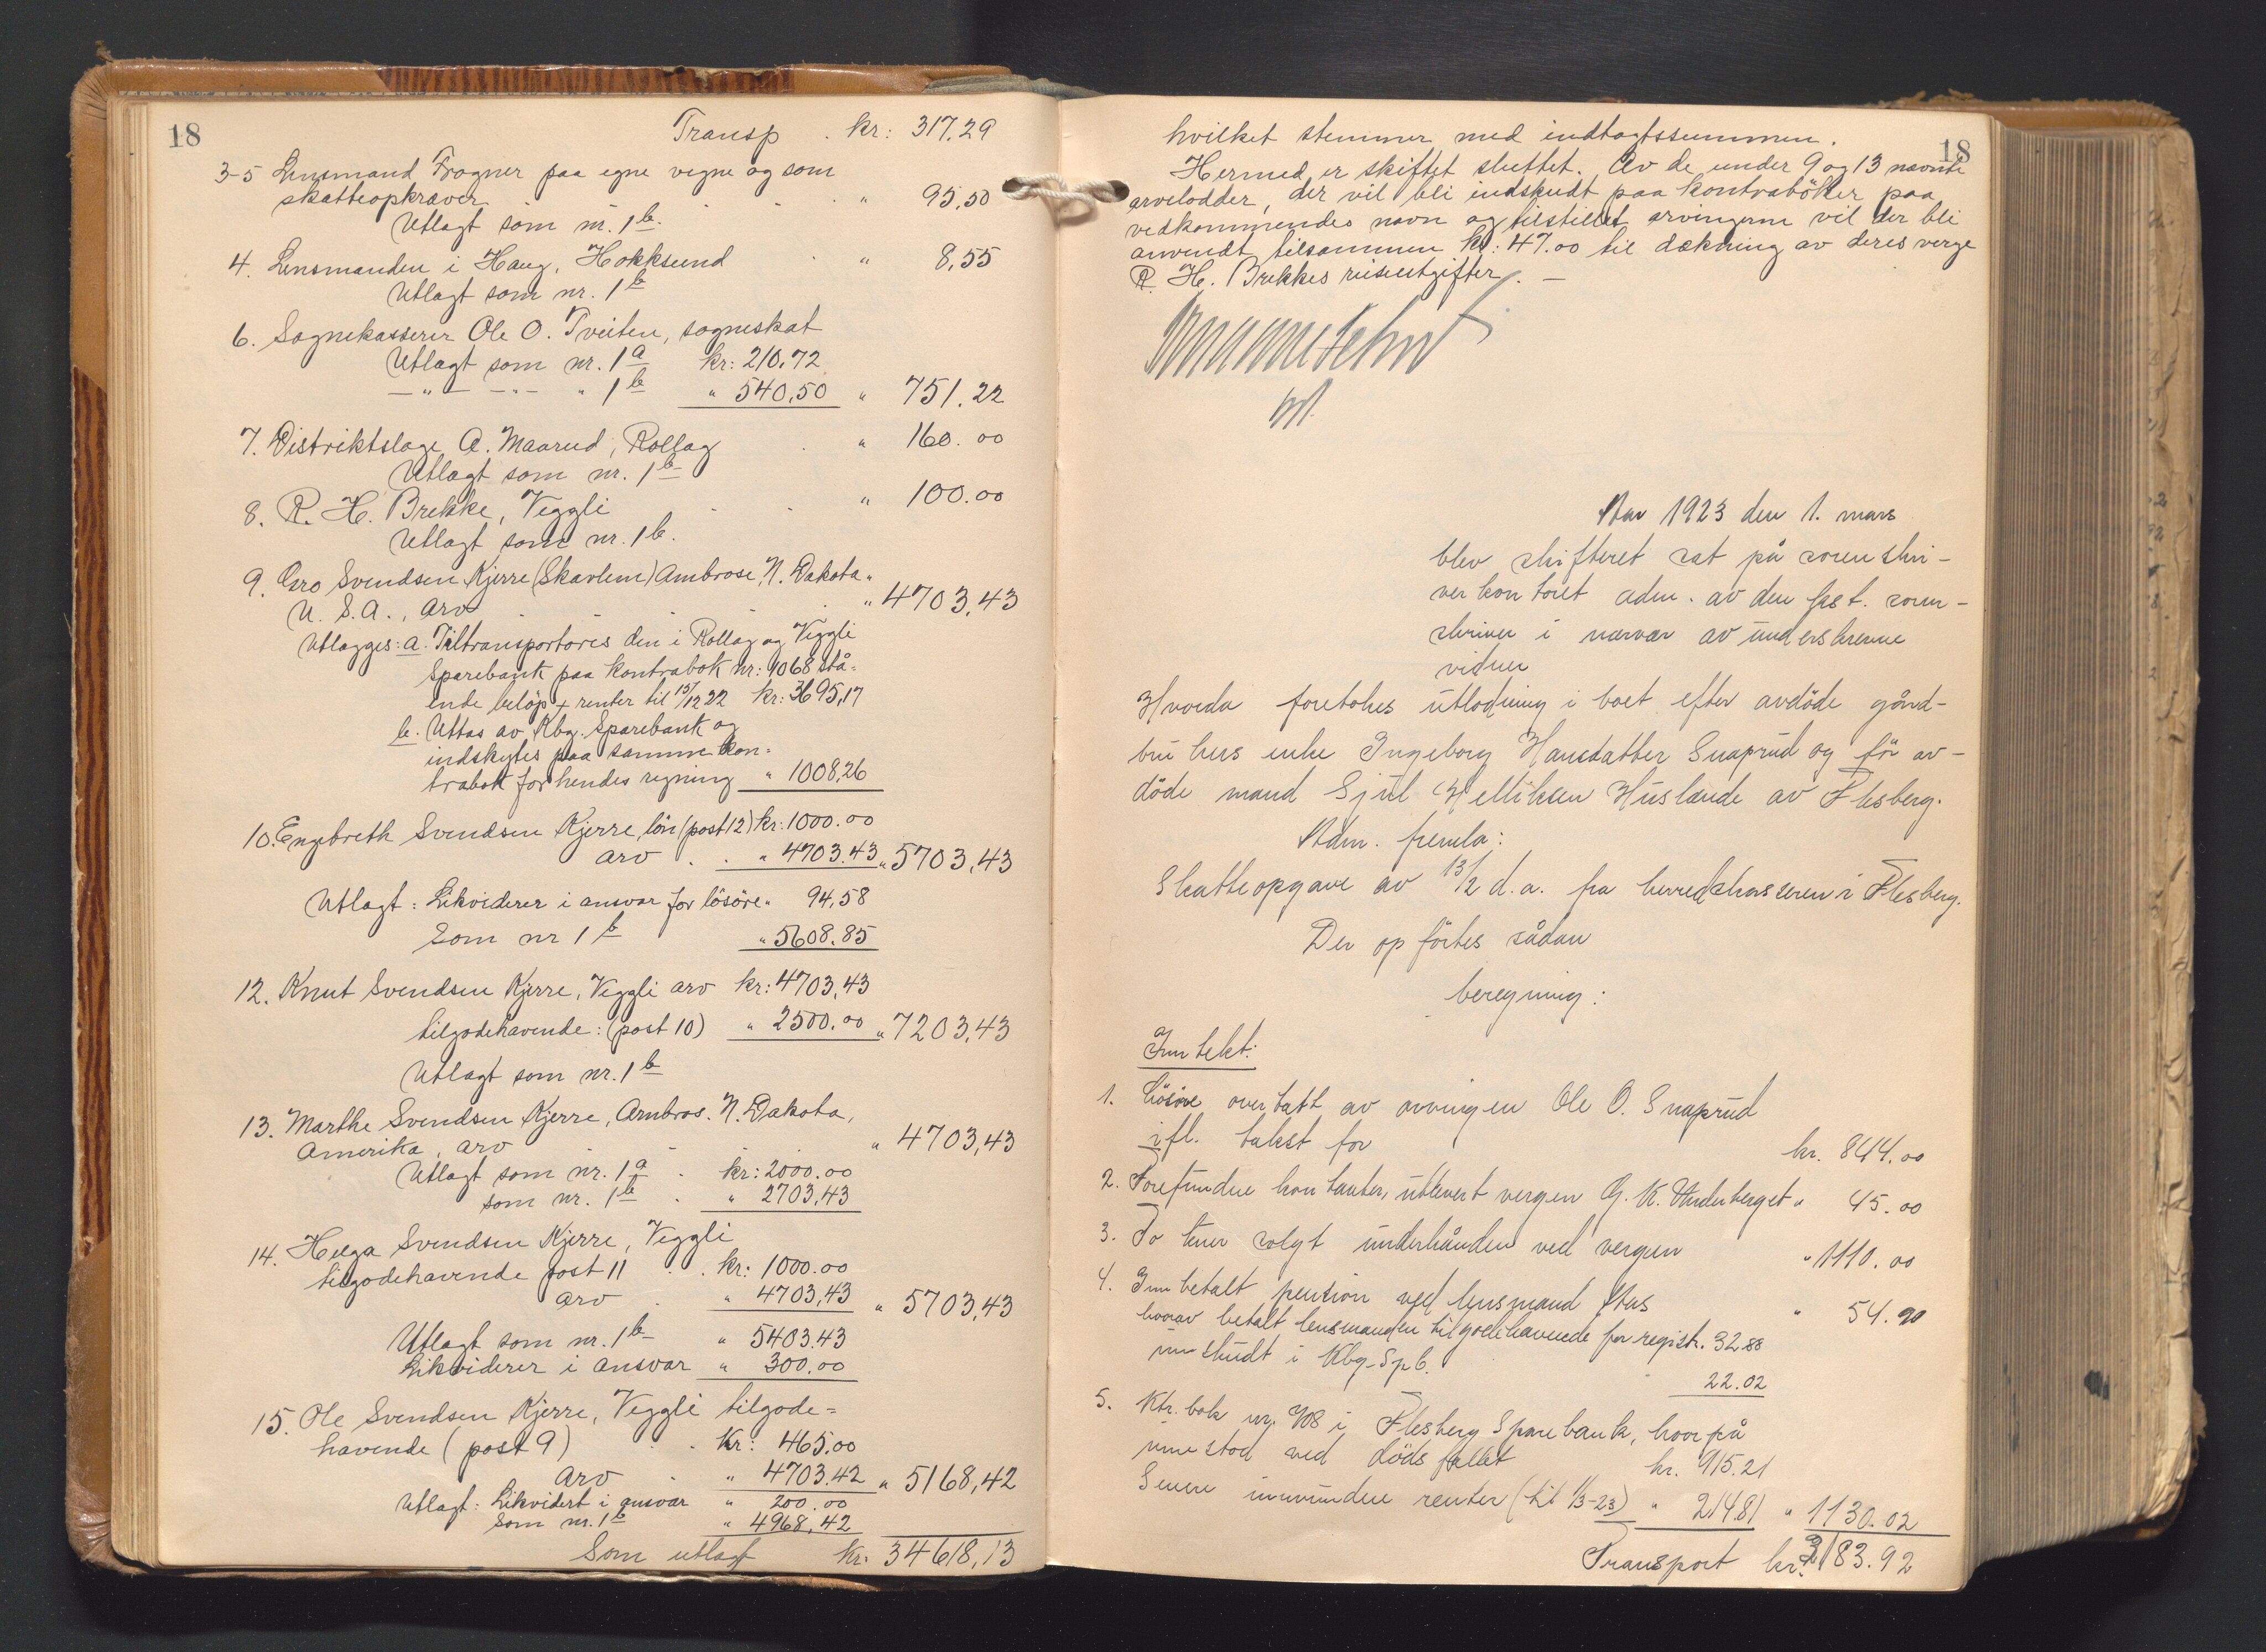 18
Transp . kr: 317.29
3-5 Lensmand Frogner paa egne vegne og som
skatteopkræver . . . " 95,50
Utlagt som nr. 1 b.
4. Lensmanden i Haug, Hokksund . " 8,55
Utlagt som nr. 1 b
6. Sognekasserer Ole O. Tveiten, sogneskat
Utlagt som nr. 1 a kr: 210.72
— " — — " — " 1 b " 540,50 " 751.22
7. Distriktslæge A. Maarud, Rollag . " 160.00
Utlagt som nr. 1 b
8. R. H. Brekke, Veggli . . " 100.00
Utlagt som nr. 1 b.
9. Gro Svendsen Kjerre (Skavlem) Ambrose, N. Dakota "
U. S. A., arv . . . " 4703,43
Utlægges: a. Tiltransporteres den i Rollag og Veggli
Sparebank paa kontrabok nr: 4068 stå=
ende beløp + renter til 15/12 22 kr: 3695,17
b. Uttas av Kbg. Sparebank og
indskytes paa samme kon=
trabok for hendes regning " 1008,26
10. Engebreth Svendsen Kjerre, løn (post 12) kr: 1000.00
arv . . " 4703.43 " 5703,43
Utlagt: Likviderer i ansvar for lösöre " 94,58
Som nr 1 b " 5608.85
12. Knut Svendsen Kjerre, Veggli arv kr: 4703,43
tilgodehavende: (post 10) " 2500.00 " 7203,43
Utlagt som nr. 1 b
13. Marthe Svendsen Kjerre, Ambros. N. Dakota,
Amerika, arv . . . " 4703,43
Utlagt som nr. 1 a . kr: 2000.00
som nr. 1 b . " 2703,43
14. Helga Svendsen Kjerre, Veggli
tilgodehavende post 11 . . kr: 1000.00
arv . " 4703,43 " 5703,43
Utlagt som nr. 1 b " 5403.43
Likviderer i ansvar " 300.00
15. Ole Svendsen Kjerre, Veggli tilgode=
havende (post 9) . . Kr: 465.00
arv . " 4703.42 " 5168,42
Utlagt: Likvidert i ansvar " 200.00
Som nr. 1 b " 4968,42
Som utlagt kr: 34618,13
18
hvilket stemmer med indtagtssummen.
Hermed er skiftet sluttet. Av de under 9 og 13 nævnte
arvelodder, der vil bli indskudt paa kontrabøker paa
vedkommendes navn og tilstillet arvingerne vil der bli
anvendt tilsammen kr: 47.00 til dækning av deres verge
R. H. Brekkes reiseutgifter. —
Aar 1923 den 1. mars
blev skifteret sat på sorenskri-
verkontoret adm. av den fast. soren-
skriver i nærvær av underskrevne
vidner
Hvorda foretokes utlodning i boet efter avdöde gård-
brukers enke Ingeborg Hansdatter Snaprud og før av-
döde mand Sjul Helliksen Huslænde av Flesberg.
Adm. fremla:
Skatteopgave av 13/2 d.a. fra herredskasseren i Flesberg.
Der opförtes sådan
beregning:
Inntekt:
1. Lösöre overtatt av arvingen Ole O. Snaprud
ifl. takst for kr. 844.00
2. Forefundne kontanter, utlevert vergen G. K. Underberget " 45.00
3. To kuer solgt underhånden ved vergen " 1110.00
4. Innbetalt pension ved lensmand Aas " 54.90
hvorav betalt lensmanden tilgodehavende for registr. 32.88
innskudt i Kbg. Spb. 22.02
5. Ktr. bok nr. 708 i Flesberg Sparebank, hvorpå
innestod ved dödsfallet kr. 915.21
Senere innvundne renter (til 1/3-23) " 214.81 " 1130.02
Transport kr. 3183.92